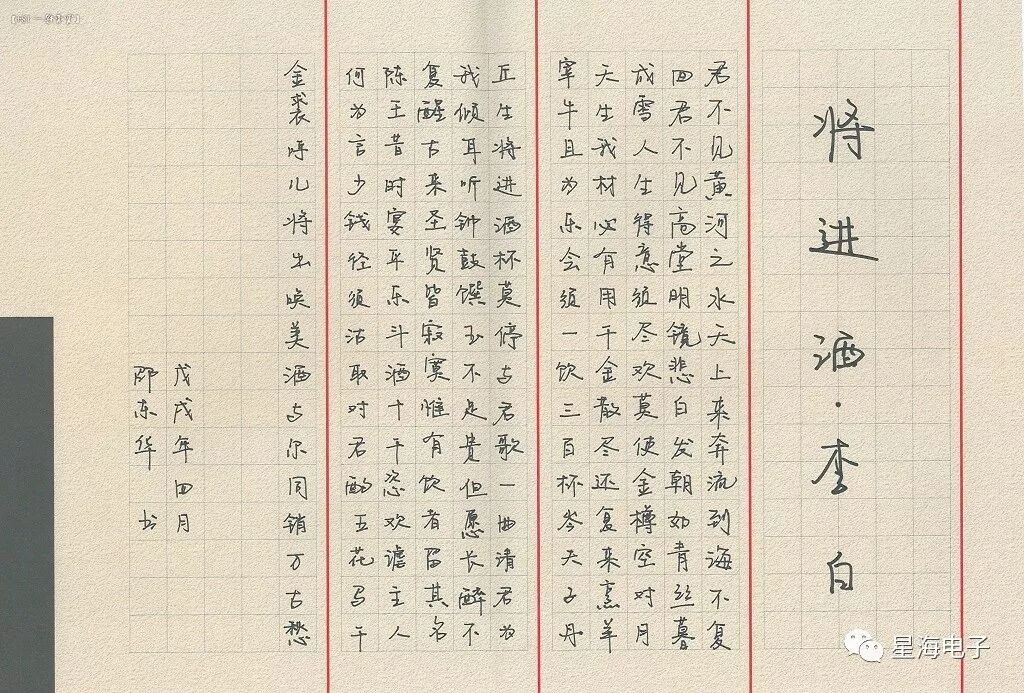 将进酒·李白
君不见黄河之水天上来奔流到海不复
回君不见高堂明镜悲白发朝如青丝暮
成雪人生得意须尽欢莫使金樽空对月
天生我材必有用千金散尽还复来烹羊
宰牛且为乐会须一饮三百杯岑夫子丹
丘生将进酒杯莫停与君歌一曲请君为
我倾耳听钟鼓馔玉不足贵但愿长醉不
复醒古来圣贤皆寂寞惟有饮者留其名
陈王昔时宴平乐斗酒十千恣欢谑主人
何为言少钱径须沽取对君酌五花马千
金裘呼儿将出唤美酒与尔同销万古愁
戊戌年四月
邵东华 书
星海电子